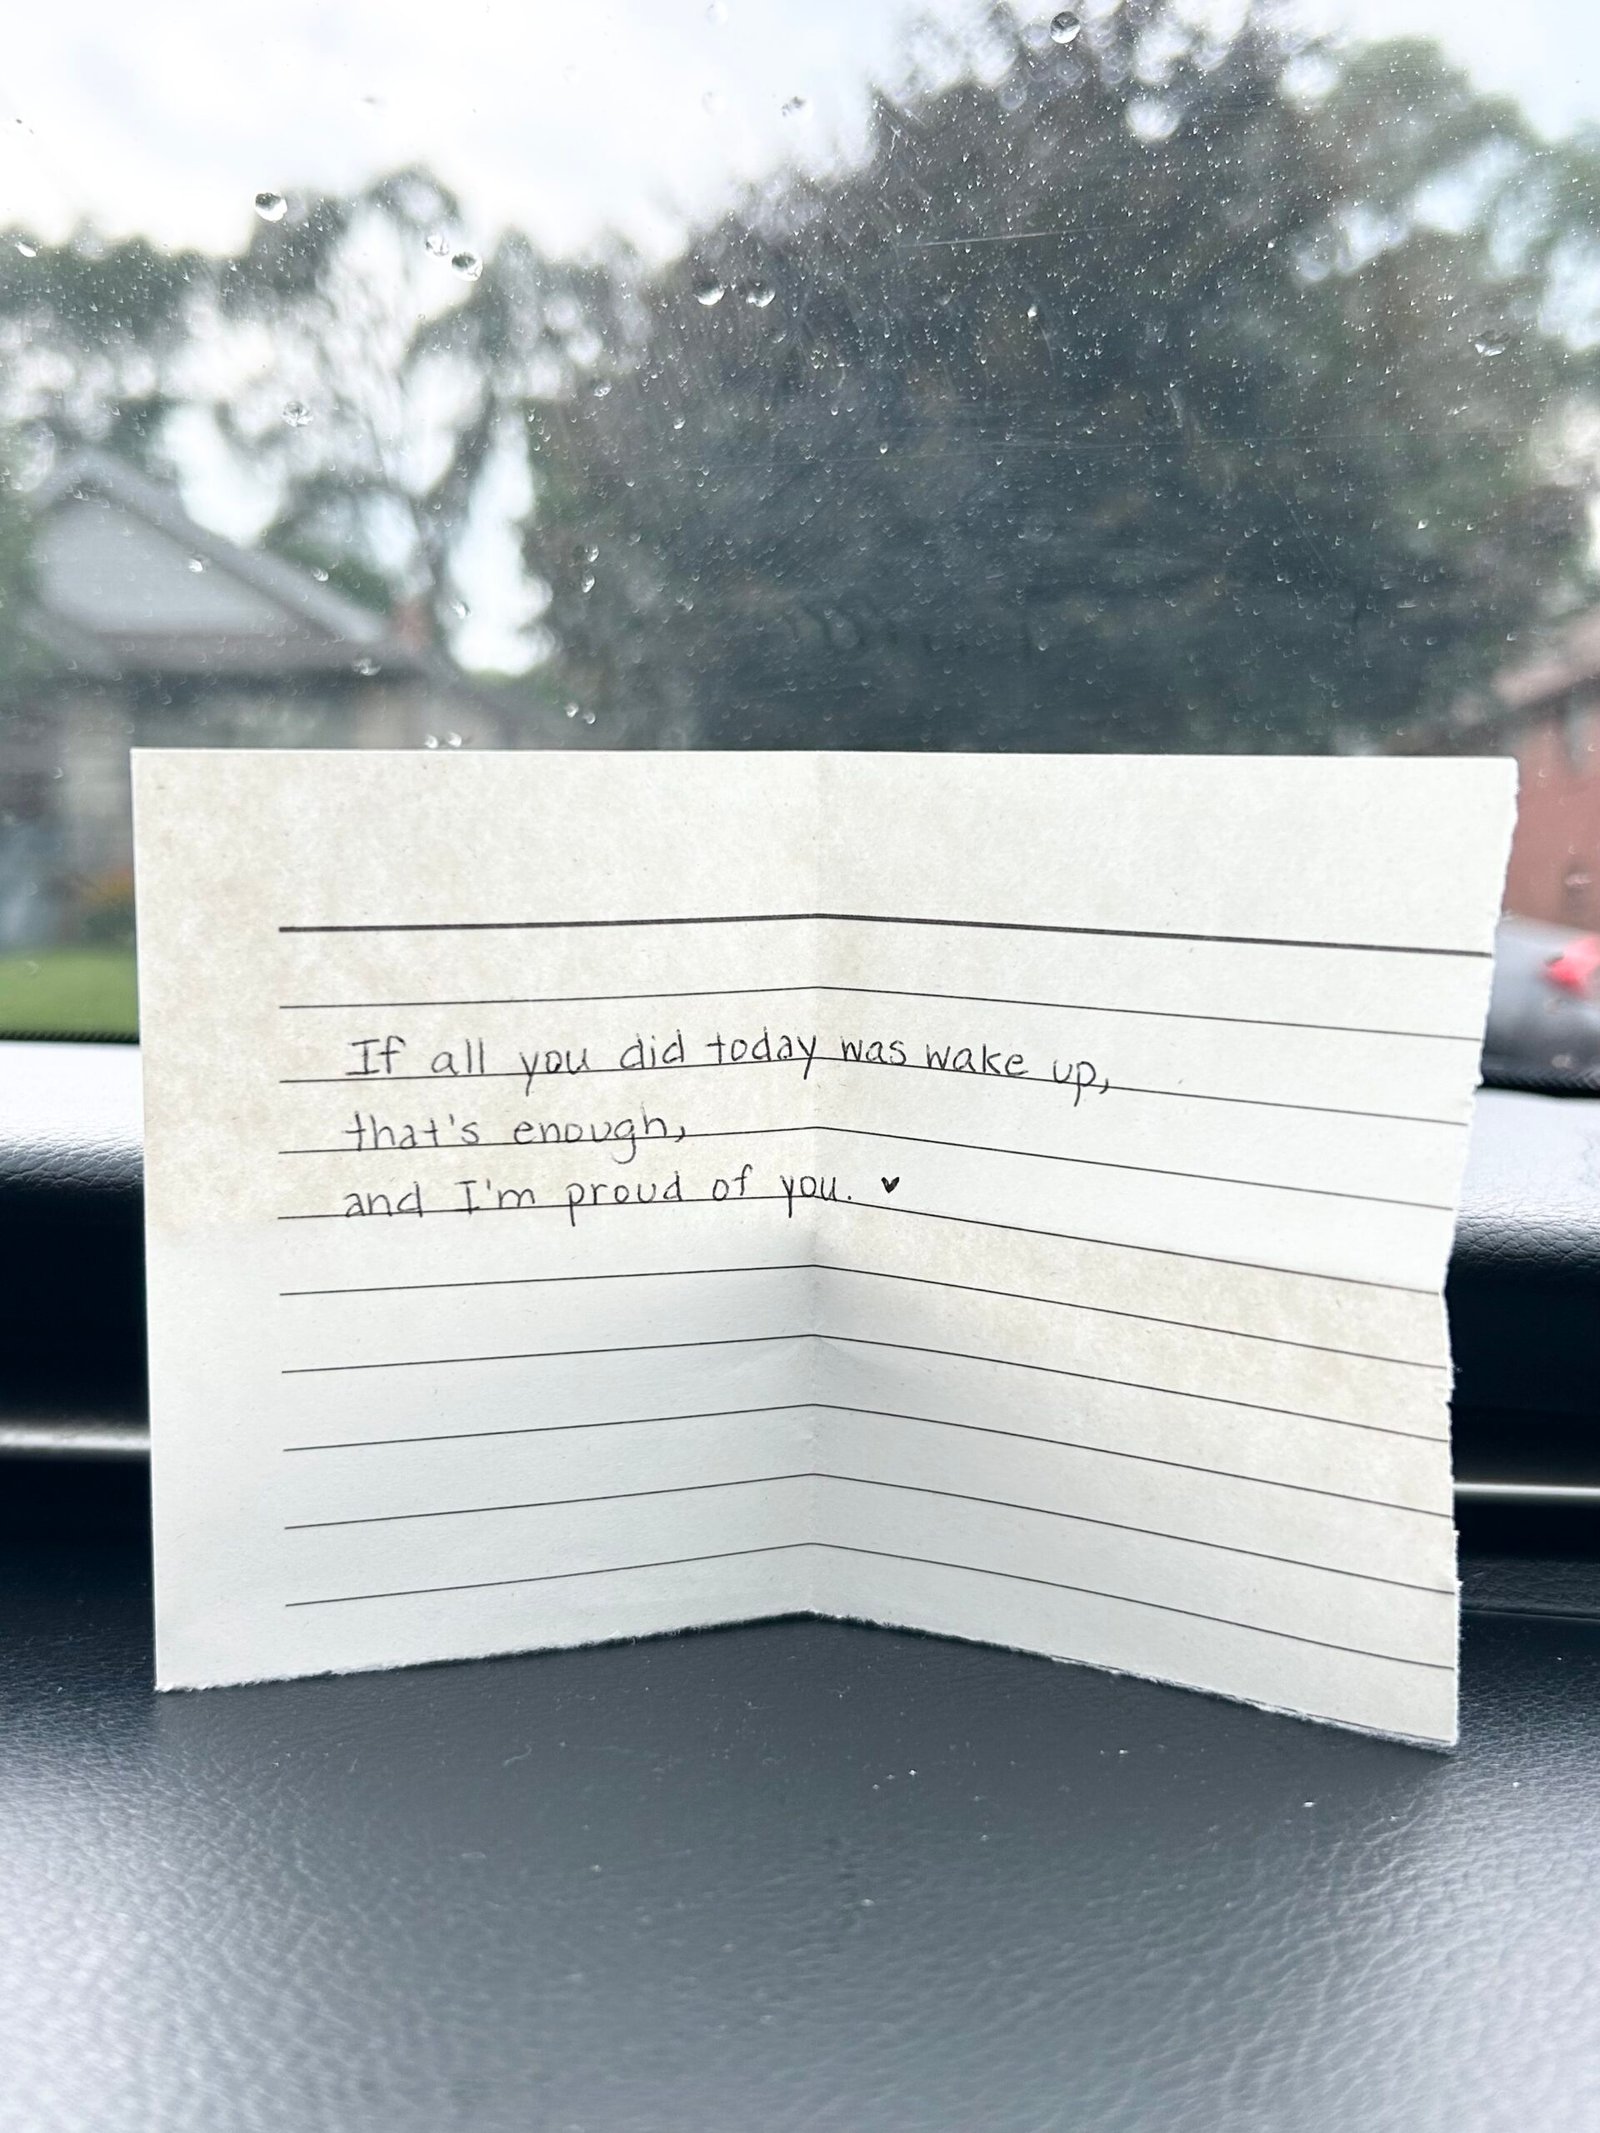 If all you did today was wake up,
that's enough,
and I'm proud of you. ♥